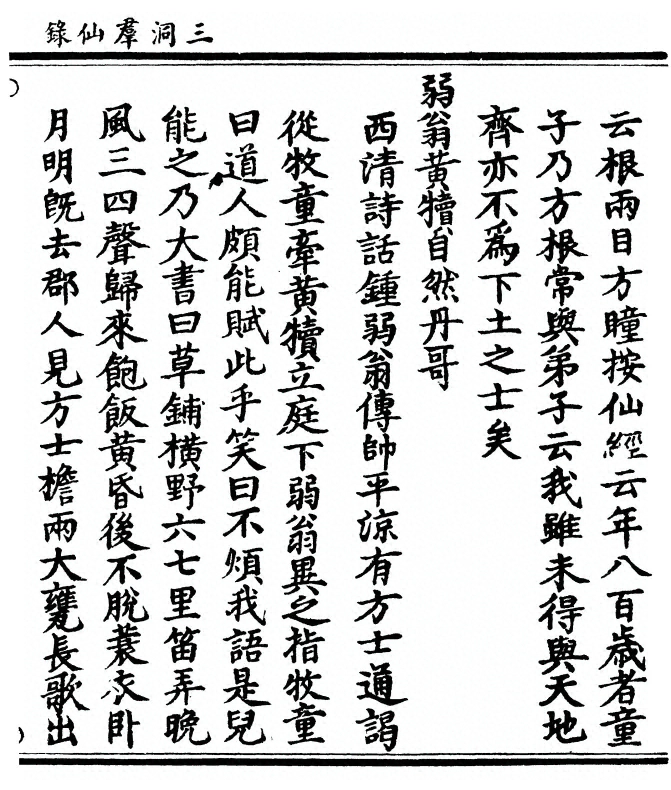 三洞羣仙錄
云根兩目方瞳按仙經云年八百歲者童
子乃方根常與弟子云我雖未得與天地
齊亦不爲下土之士矣
弱翁黃犢自然丹哥
西清詩話鍾弱翁傳帥平涼有方士通謁
從牧童牽黃犢立庭下弱翁異之指牧童
曰道人頗能賦此乎笑曰不煩我語是兒
能之乃大書曰草鋪橫野六七里笛弄晚
風三四聲歸來飽飯黃昏後不脫蓑衣卧
月明旣去郡人見方士檐兩大甕長歌出